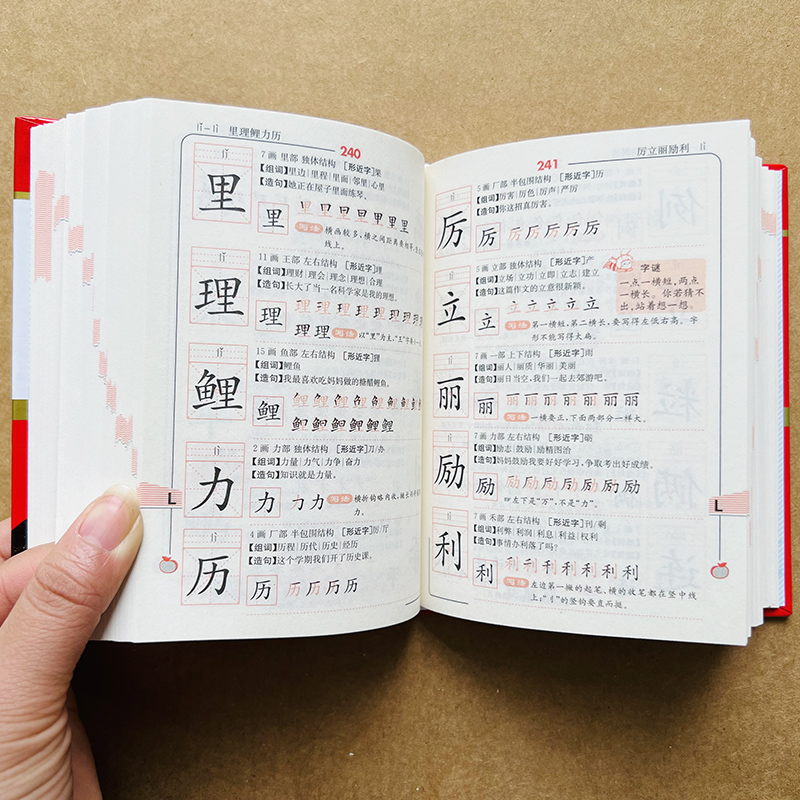 lǐ—lì 里理鲤力历
240
lǐ
里
7画 里部 独体结构 [形近字]果
【组词】里边|里程|里面|邻里|心里
【造句】她正在屋子里面练琴。
里
写法 横画较多,横之间距离要相等
线上。
lǐ
理
11画 王部 左右结构 [形近字]埋
【组词】理财|理会|理念|理想|合理
【造句】长大了当一名科学家是我的理想。
理 理理理理理理理理
理理理 写法 以“里”为主,“王”
lǐ
鲤
15画 鱼部 左右结构 [形近字]
【组词】鲤鱼
【造句】我最喜欢吃妈妈做的糖醋鲤鱼。
鲤
lì
力
2画 力部 独体结构 [形近字]刀/办
【组词】力量|力气|力争|奋力
【造句】知识就是力量。
力 力力 写法 横折钩略内收,
力。
lì
历
4画 厂部 半包围结构 [形近字]厉/厅
【组词】历程|历代|历史|经历
【造句】这个学期我们开了历史课。
历 历历历历
L
241
厉立丽励利 lì
lì
厉
5画 厂部 半包围结构 [形近字]历
【组词】厉害|厉色|厉声|严厉
【造句】你这招真厉害。
厉 厉厉厉厉厉
lì
立
5画 立部 独体结构 [形近字]产
【组词】立场|立功|立即|立志|建立
【造句】这篇作文的立意很新颖。
立 立立立立立
写法 第一横短,第二横长,要写得左低右高。字
形不能写得太扁。
字谜
一点一横短,两点
一横长。你若猜不
出,站着想一想。
lì
丽
7画 一部 上下结构 [形近字]雨
【组词】丽人|丽质|华丽|美丽
【造句】丽日当空,我们一起去郊游吧。
丽 丽丽丽丽丽丽丽
写法 一横要正,下面两部分一样大。
lì
励
7画 力部 左右结构 [形近字]砺
【组词】励志|鼓励|励精图治
【造句】妈妈鼓励我要好好学习,争取考出好成绩。
励 励励励励励励励
写法 左下是“万”,不是“力”。
lì
利
7画 禾部 左右结构 [形近字]刊/剩
【组词】利弊|利润|利息|利益|权利
【造句】事情办利落了吗?
利 利利利利利利利
写法 左边第一撇的起笔、横的收笔都在竖中线
上;“刂”的竖钩要直而挺。
L